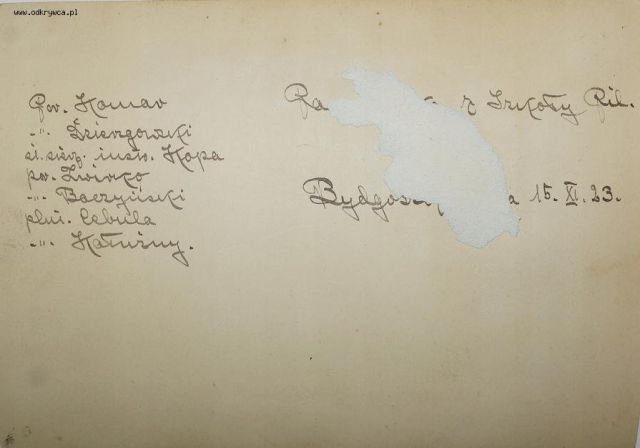 www.odkrywca.pl
Por. Komar
-"- Dzierzgowski
st. sierż. instr. Kopa
por. Żwirko
-"- Baczyński
plut. Cebula
-"- Kałużny.
z Szkoły Pil.
Bydgoszcz 15. XI. 23.